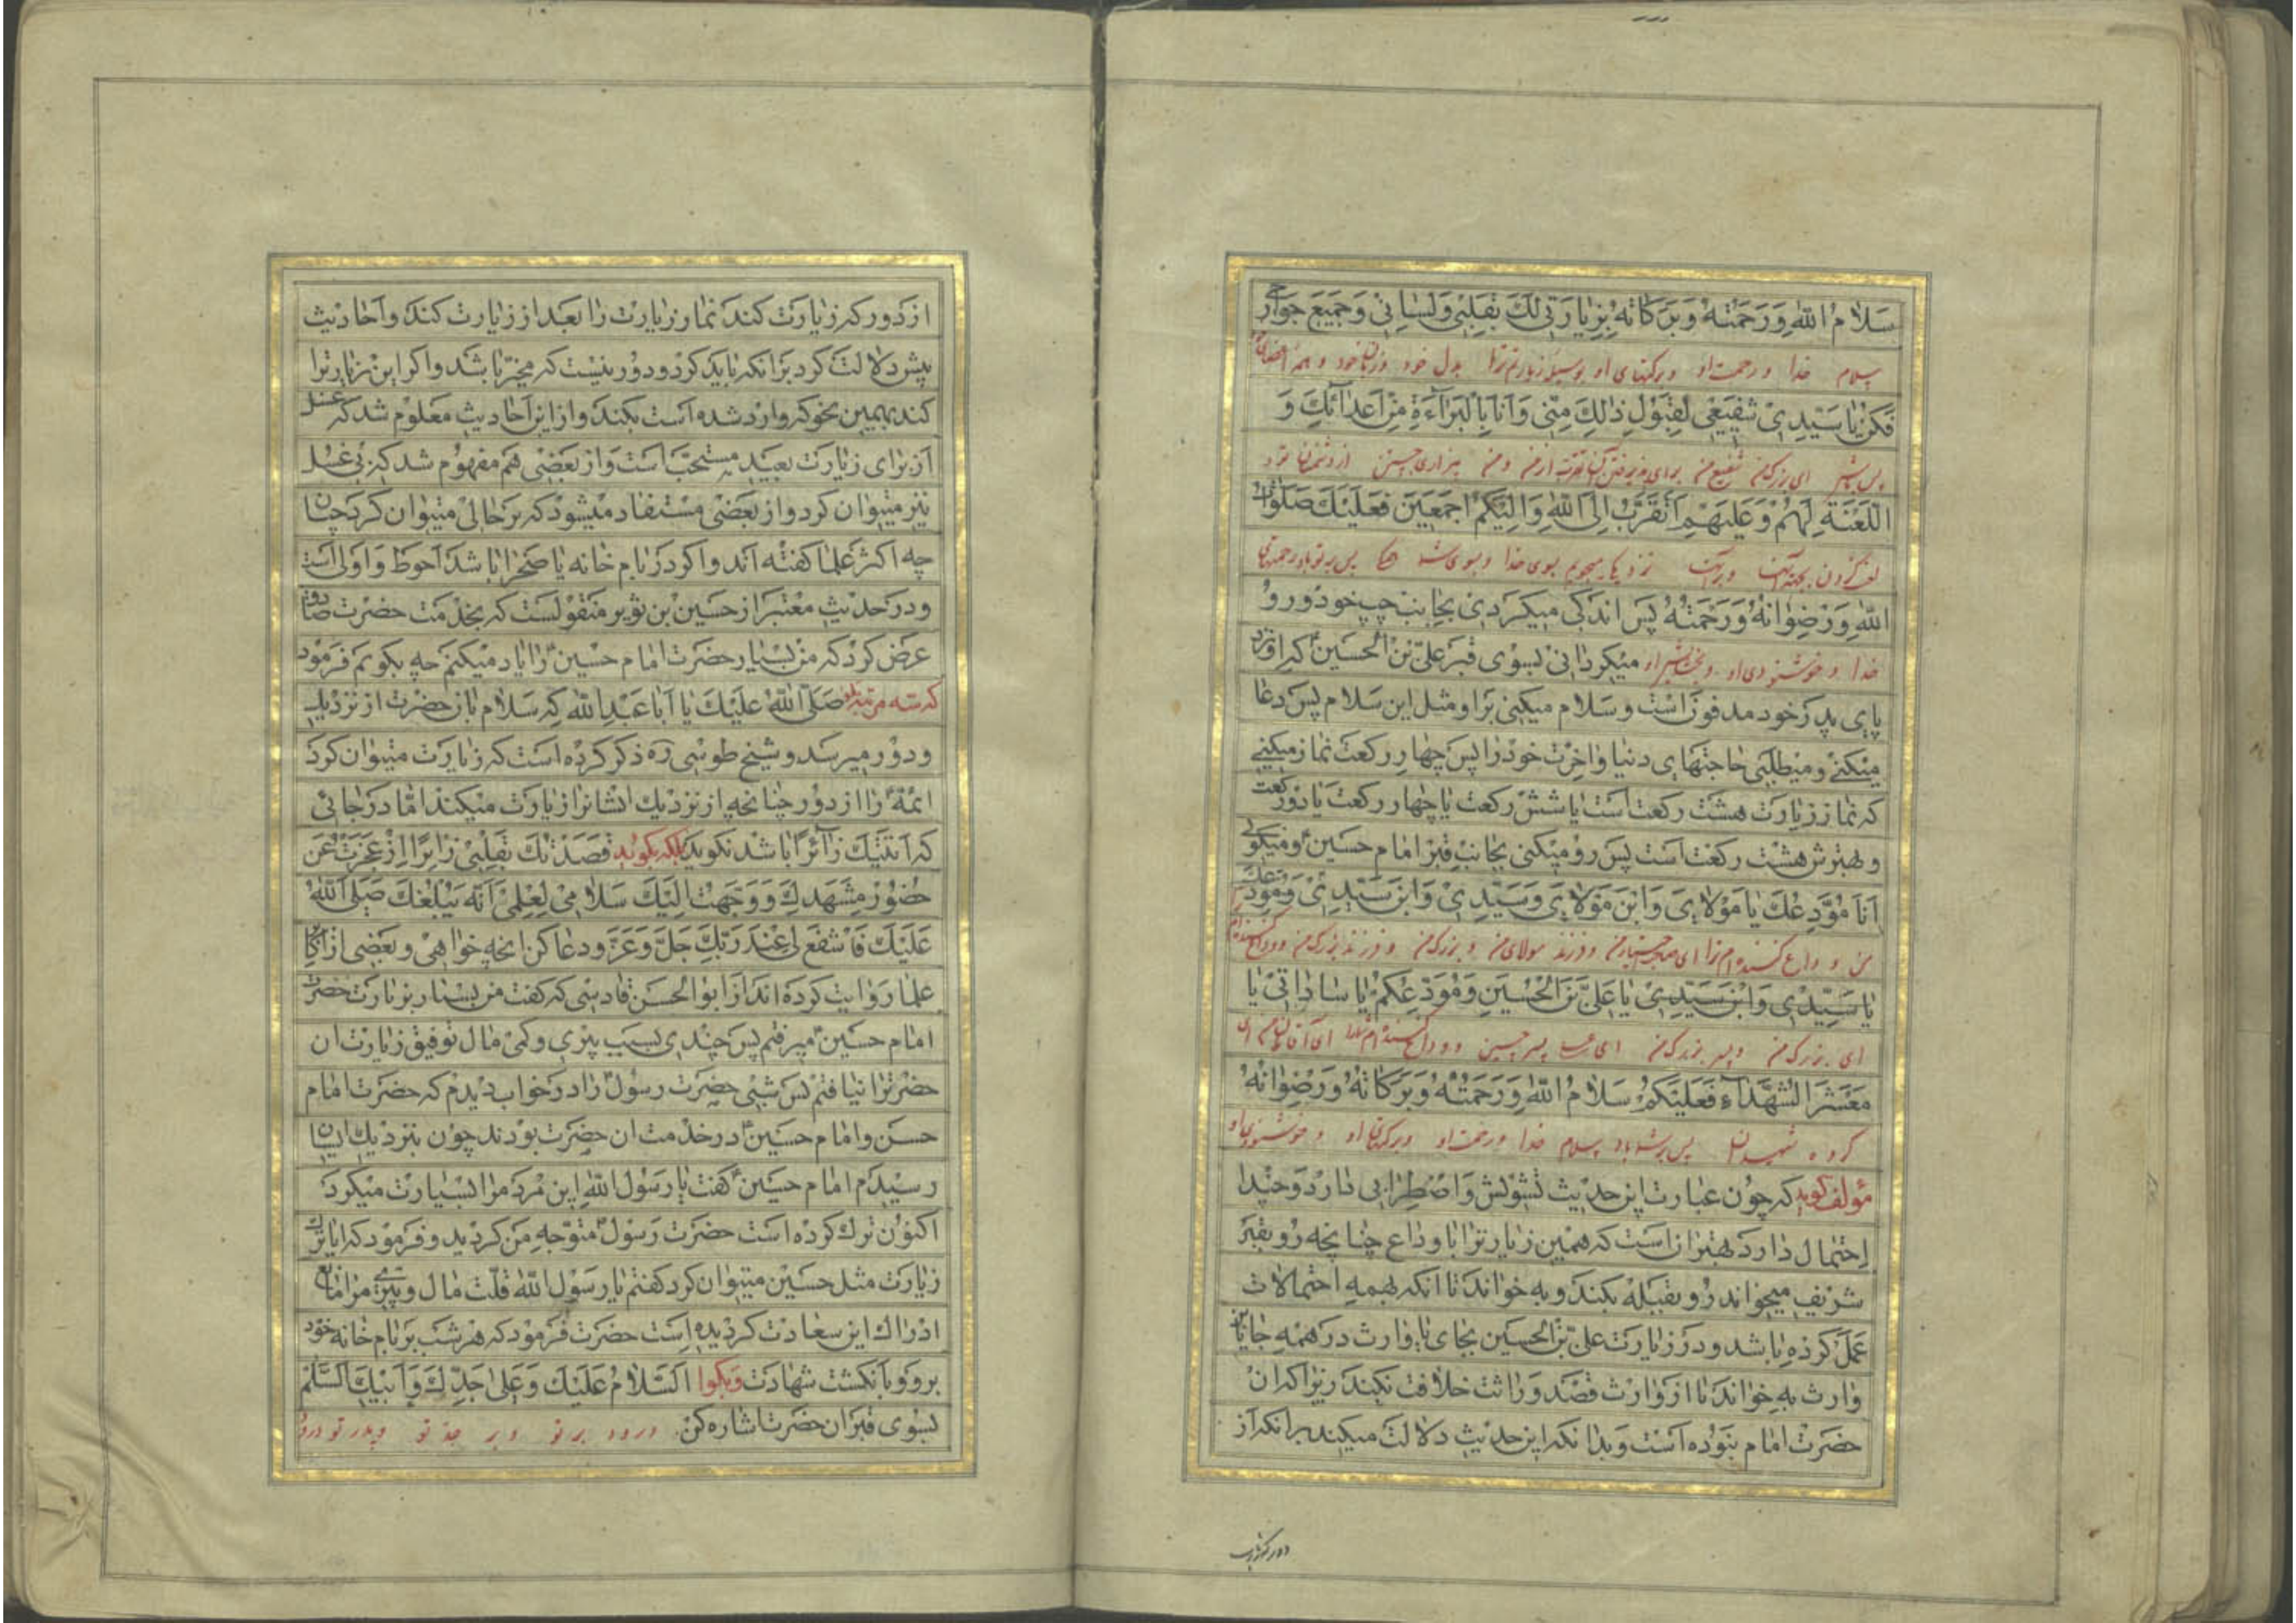 سَلامُ اللهِ وَرَحْمَتُهُ وَبَرَكاتُهُ بِزِيارَتي لَكَ بِقَلْبي وَلِساني وَجَميعِ جَوارِحي
سلام خدا و رحمت او و برکتهای او بوسیله زیارتم ترا بدل خود و زبان خود و همه اعضای
فَكُنْ يا سَيِّدي شَفيعي لِقَبُولِ ذلِكَ مِنّي وَاَنَا بِالْبَرآءَةِ مِنْ اَعْدآئِكَ وَ
پس باش ای بزرک من شفیع من برای پذیرفتن آن از من و من به بیزاری جستن از دشمنان تو و
اللَّعْنَةِ لَهُمْ وَعَلَيْهِمْ اَتَقَرَّبُ اِلَى اللهِ وَاِلَيْكُمْ اَجْمَعينَ فَعَلَيْكَ صَلَواتُ
نزدیکی میجویم بسوی خدا و بسوی شما همه پس بر تو باد رحمتهای
اللهِ وَرِضْوانُهُ وَرَحْمَتُهُ پس اندکی میکردی بجانب چپ خود و رو
خدا و خوشنودی او و بخشایش او میکردانی بسوی قبر علی بن الحسین که او نزد
پای پدر خود مدفون است و سلام میکنی بر او مثل این سلام پس دعا
میکنی و میطلبی حاجتهای دنیا و اخرت خود را پس چهار رکعت نماز میکنی
که نماز زیارت هشت رکعت است یا شش رکعت یا چهار رکعت یا دو رکعت
و بهترش هشت رکعت است پس رو میکنی بجانب قبر امام حسین ع و میکوئی
اَنَا مُوَدِّعُكَ يا مَوْلايَ وَابْنَ مَوْلايَ وَسَيِّدي وَابْنَ سَيِّدي وَمُوَدِّعُكَ
من وداع کننده ام ترا ای صاحب اختیار من و فرزند مولای من و بزرک من و فرزند بزرک من و وداع کننده ام
يا سَيِّدي وَابْنَ سَيِّدي يا عَلِيَّ بْنَ الْحُسَيْنِ وَمُوَدِّعُكُمْ يا ساداتي يا
ای بزرک من و پسر بزرک من ای علی پسر حسین و وداع کننده ام شما را ای آقایان من ای
مَعْشَرَ الشُّهَدآءِ فَعَلَيْكُمْ سَلامُ اللهِ وَرَحْمَتُهُ وَبَرَكاتُهُ وَرِضْوانُهُ
کروه شهیدان پس بر شما باد سلام خدا و رحمت او و برکتهای او و خوشنودی او
مؤلف کوید که چون عبارت این حدیث تشویش و اضطرابی دارد و چند
احتمال دارد بهتر ان است که همین زیارت را با وداع چنانچه رو بقبر
شریف میخواند رو بقبله بکند و به خواند تا انکه بهمه احتمالات
عمل کرده باشد و در زیارت علی بن الحسین بجای یا وارث در همه جا یا بن
وارث به خواند تا از وارث قصد وراثت خلافت نکند زیرا که ان
حضرت امام نبوده است و بدانکه این حدیث دلالت میکند بر انکه از
دور که زیارت
از دور که زیارت کند نماز زیارت را بعد از زیارت کند و احادیث
پیش دلالت کرد بر انکه باید کرد و دور نیست که مخیر باشد و اکر این زیارت را
کند بهمین نحو که وارد شده است بکند و از این احادیث معلوم شد که غسل
از برای زیارت بعید مستحب است و از بعضی هم مفهوم شد که بی غسل
نیز میتوان کرد و از بعضی مستفاد میشود که بر حالی میتوان کرد چنان
چه اکثر علما کفته اند و اکر در بام خانه یا صحرا باشد احوط و اولی است
و در حدیث معتبر از حسین بن ثویر منقولست که بخدمت حضرت صادق
عرض کرد که من بسیار حضرت امام حسین ع را یاد میکنم چه بکویم فرمود
که سه مرتبه بکو صَلَّى اللهُ عَلَيْكَ يا اَبا عَبْدِ اللهِ که سلام بان حضرت از نزدیک
و دور میرسد و شیخ طوسی ره ذکر کرده است که زیارت میتوان کرد
ائمه ع را از دور چنانچه از نزدیک ایشانرا زیارت میکنند اما در جائی
که اَتَيْتُكَ زآئِرًا باشد نکوید بلکه بکوید قَصَدْتُكَ بِقَلْبي زائِرًا اِذْ عَجَزْتُ عَنْ
حُضُورِ مَشْهَدِكَ وَوَجَّهْتُ اِلَيْكَ سَلامي لِعِلْمي اَنَّهُ يَبْلُغُكَ صَلَّى اللهُ
عَلَيْكَ فَاشْفَعْ لي عِنْدَ رَبِّكَ جَلَّ وَعَزَّ و دعا کن انچه خواهی و بعضی از اکابر
علما روایت کرده اند از ابو الحسن فادسی که کفت من بسیار بزیارت حضرت
امام حسین ع میرفتم پس چندی بسبب پیری و کمی مال توفیق زیارت ان
حضرت را نیافتم پس شبی حضرت رسول را در خواب دیدم که حضرت امام
حسن و امام حسین ع در خدمت ان حضرت بودند چون بنزدیک ایشان
رسیدم امام حسین ع کفت یا رسول الله این مرد مرا بسیار زیارت میکرد
اکنون ترک کرده است حضرت رسول متوجه من کردید و فرمود که ایا ترک
زیارت مثل حسین میتوان کرد کفتم یا رسول الله قلت مال و پیری مرا مانع
ادراک این سعادت کردیده است حضرت فرمود که هر شب بر بام خانه خود
برو و بانکشت شهادت بسوی قبر ان حضرت اشاره کن و بکو اَلسَّلامُ عَلَيْكَ وَعَلى جَدِّكَ وَاَبيكَ اَلسَّلامُ
درود بر تو و بر جد تو و پدر تو درود